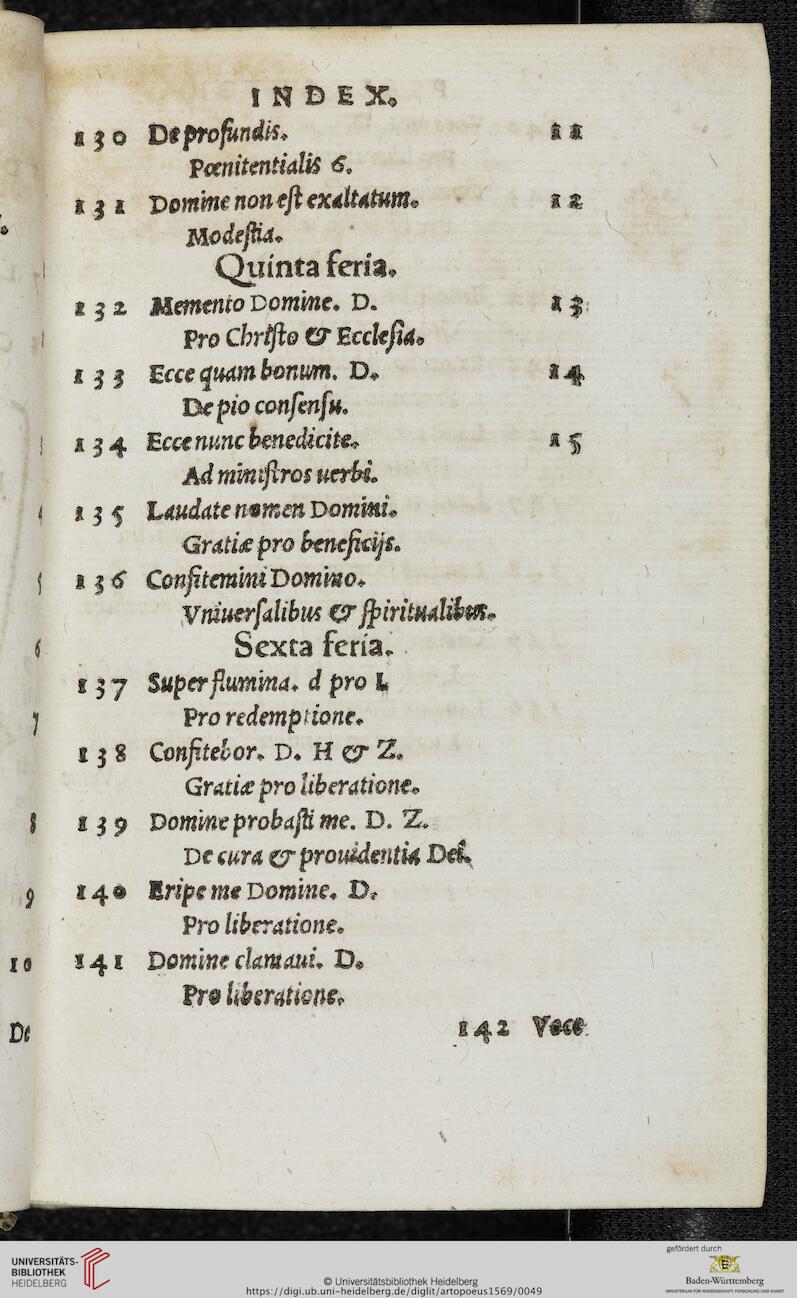 INDEX.
130 De profundis. 11
Pœnitentialis 6.
131 Domine non est exaltatum. 12
Modestia.
Quinta feria.
132 Memento Domine. D. 13
Pro Christo & Ecclesia.
133 Ecce quam bonum. D. 14
De pio consensu.
134 Ecce nunc benedicite. 15
Ad ministros uerbi.
135 Laudate nomen Domini.
Gratiæ pro beneficijs.
136 Confitemini Domino.
Vniuersalibus & spiritualibus.
Sexta feria.
137 Super flumina. d pro I.
Pro redemptione.
138 Confitebor. D. H & Z.
Gratiæ pro liberatione.
139 Domine probasti me. D. Z.
De cura & prouidentia Dei.
140 Eripe me Domine. D.
Pro liberatione.
141 Domine clamaui. D.
Pro liberatione.
142 Voce
5
6
7
8
9
10
De
UNIVERSITÄTS-
BIBLIOTHEK
HEIDELBERG
© Universitätsbibliothek Heidelberg
https://digi.ub.uni-heidelberg.de/diglit/artopoeus1569/0049
gefördert durch
Baden-Württemberg
MINISTERIUM FÜR WISSENSCHAFT, FORSCHUNG UND KUNST